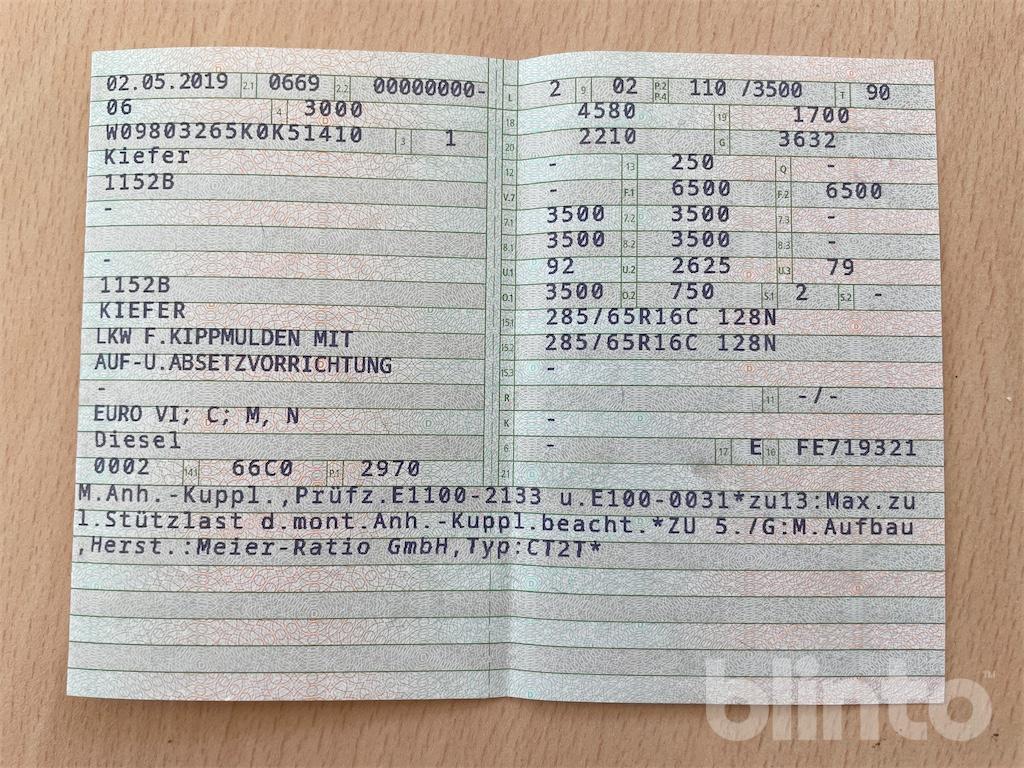 02.05.2019 2.1 0669 2.2 00000000-
06 4 3000
W09803265K0K51410 3 1
Kiefer
1152B
-
-
1152B
KIEFER
LKW F.KIPPMULDEN MIT
AUF-U.ABSETZVORRICHTUNG
-
EURO VI; C; M, N
Diesel
0002 14.1 66C0 P.1 2970
L 2 9 02 P.2 P.4 110 /3500 T 90
18 4580 19 1700
20 2210 G 3632
12 - 13 250 Q -
V.7 - F.1 6500 F.2 6500
7.1 3500 7.2 3500 7.3 -
8.1 3500 8.2 3500 8.3 -
U.1 92 U.2 2625 U.3 79
O.1 3500 O.2 750 S.1 2 S.2 -
15.1 285/65R16C 128N
15.2 285/65R16C 128N
15.3 -
R 11 -/-
K -
6 - 17 E 16 FE719321
21
M.Anh.-Kuppl.,Prüfz.E1100-2133 u.E100-0031*zu13:Max.zu
l.Stützlast d.mont.Anh.-Kuppl.beacht.*ZU 5./G:M.Aufbau
,Herst.:Meier-Ratio GmbH,Typ:CT2T*
blinto™